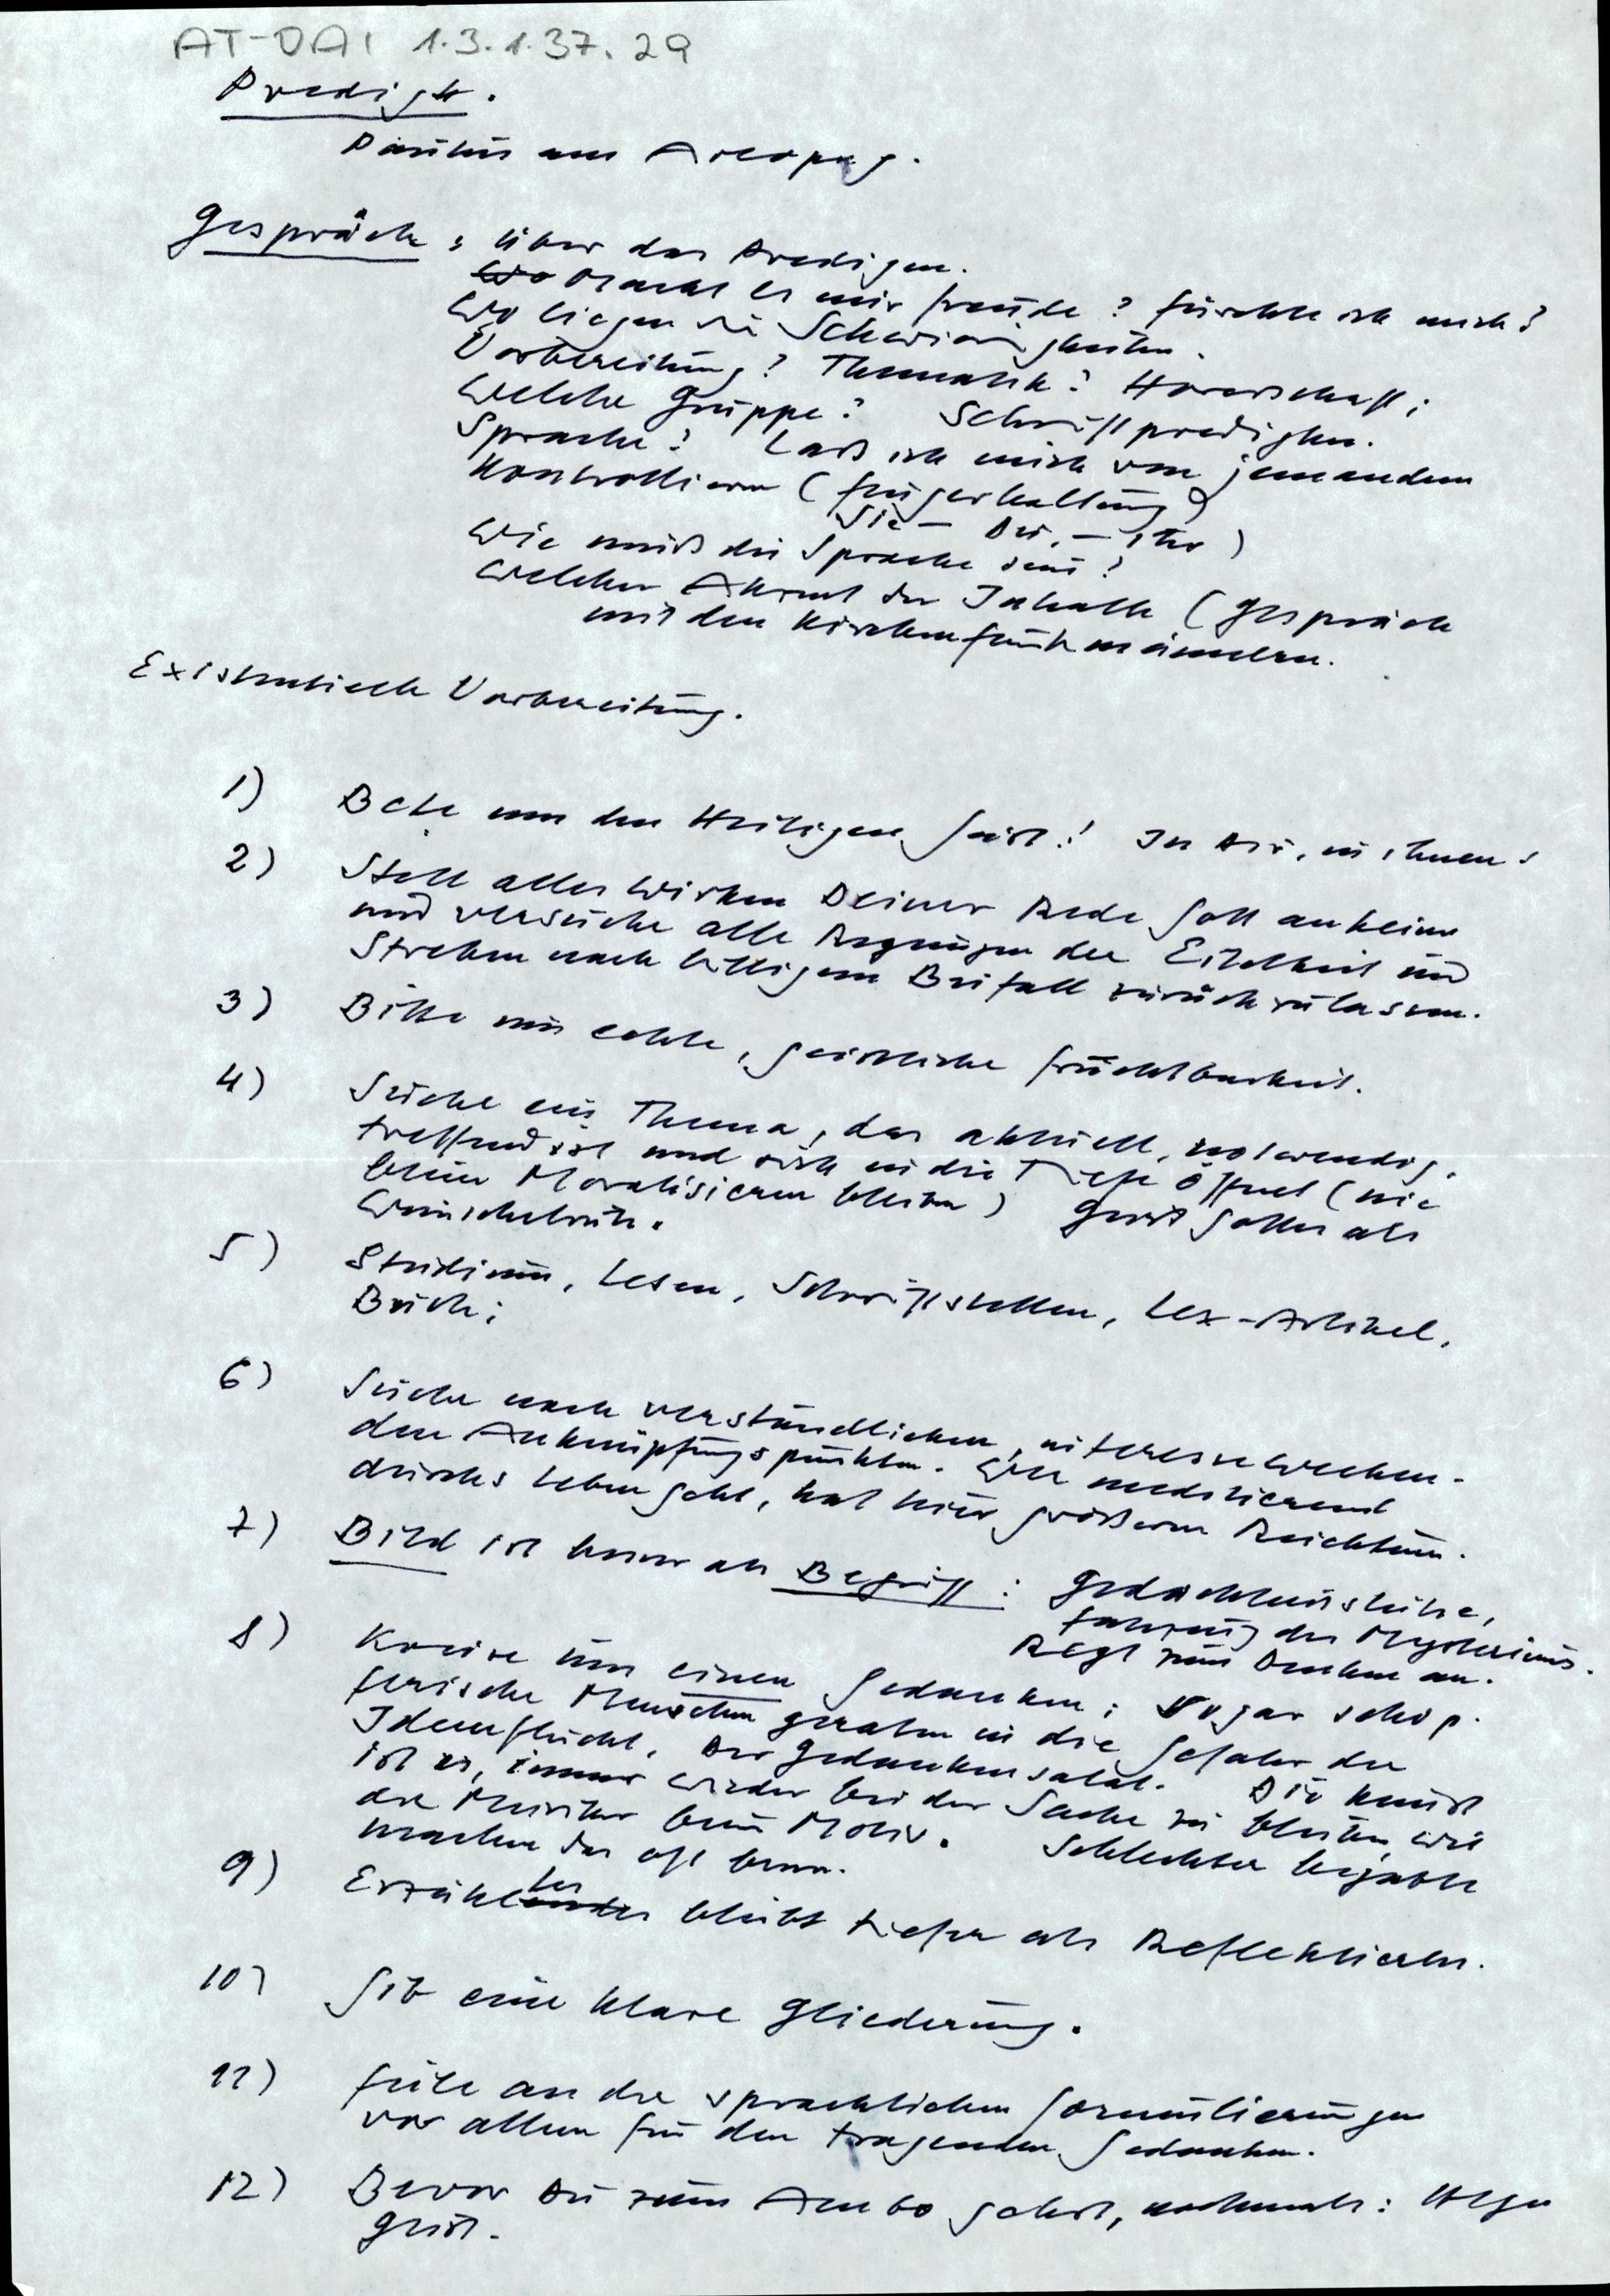 AT-DAI 1.3.1.37.29
Predigt.
Paulus am Areopag.
Gespräch: über das Predigen.
Wo Macht es mir Freude? fürchte ich mich?
Wo liegen die Schwierigkeiten.
Vorbereitung? Thematik? Hörerschaft;
Welche Gruppe? Schriftpredigten.
Sprache? Laß ich mich von jemandem
Kontrollieren (Fingerhaltung)
Sie – Du, – Ihr)
Wie muß die Sprache sein?
Welcher Akzent der Inhalte (Gespräch
mit den Kirchenfunkmännern.
Existentielle Vorbereitung.
1) Bete um den Heiligen Geist! In Dir, in ihnen!
2) Stell alles Wirken Deiner Rede Gott anheim
und versuche alle Regungen der Eitelkeit und
Streben nach billigem Beifall zurückzulassen.
3) Bitte um echte, geistliche Fruchtbarkeit.
4) Suche ein Thema, das aktuell, notwendig,
treffend ist und sich in die Tiefe öffnet (nie
beim Moralisieren bleiben) Geist Gottes als
Wünschelrute.
5) Studium, Lesen, Schriftstellen, Lex-Artikel,
Buch;
6) Suche nach verständlichen, interessewecken-
den Anknüpfungspunkten. Wer meditierend
durchs Leben geht, hat hier größeren Reichtum.
7) Bild ist besser als Begriff: Gedächtnisstütze,
Fassung des Mysteriums.
Regt zum Denken an.
8) Kreise um einen Gedanken; sogar schöp-
ferische Menschen geraten in die Gefahr der
Ideenflucht. Der Gedankensalat. Die Kunst
ist es, immer wieder bei der Sache zu bleiben, wie
die Musiker beim Motiv. Schlechter begabte
machen das oft besser.
9) Erzähltes bleibt tiefer als Reflektiertes.
10) Gib eine klare Gliederung.
11) Feile an den sprachlichen Formulierungen
vor allem für den tragenden Gedanken.
12) Bevor Du zum Ambo gehst, nochmals: Hlger
Geist.